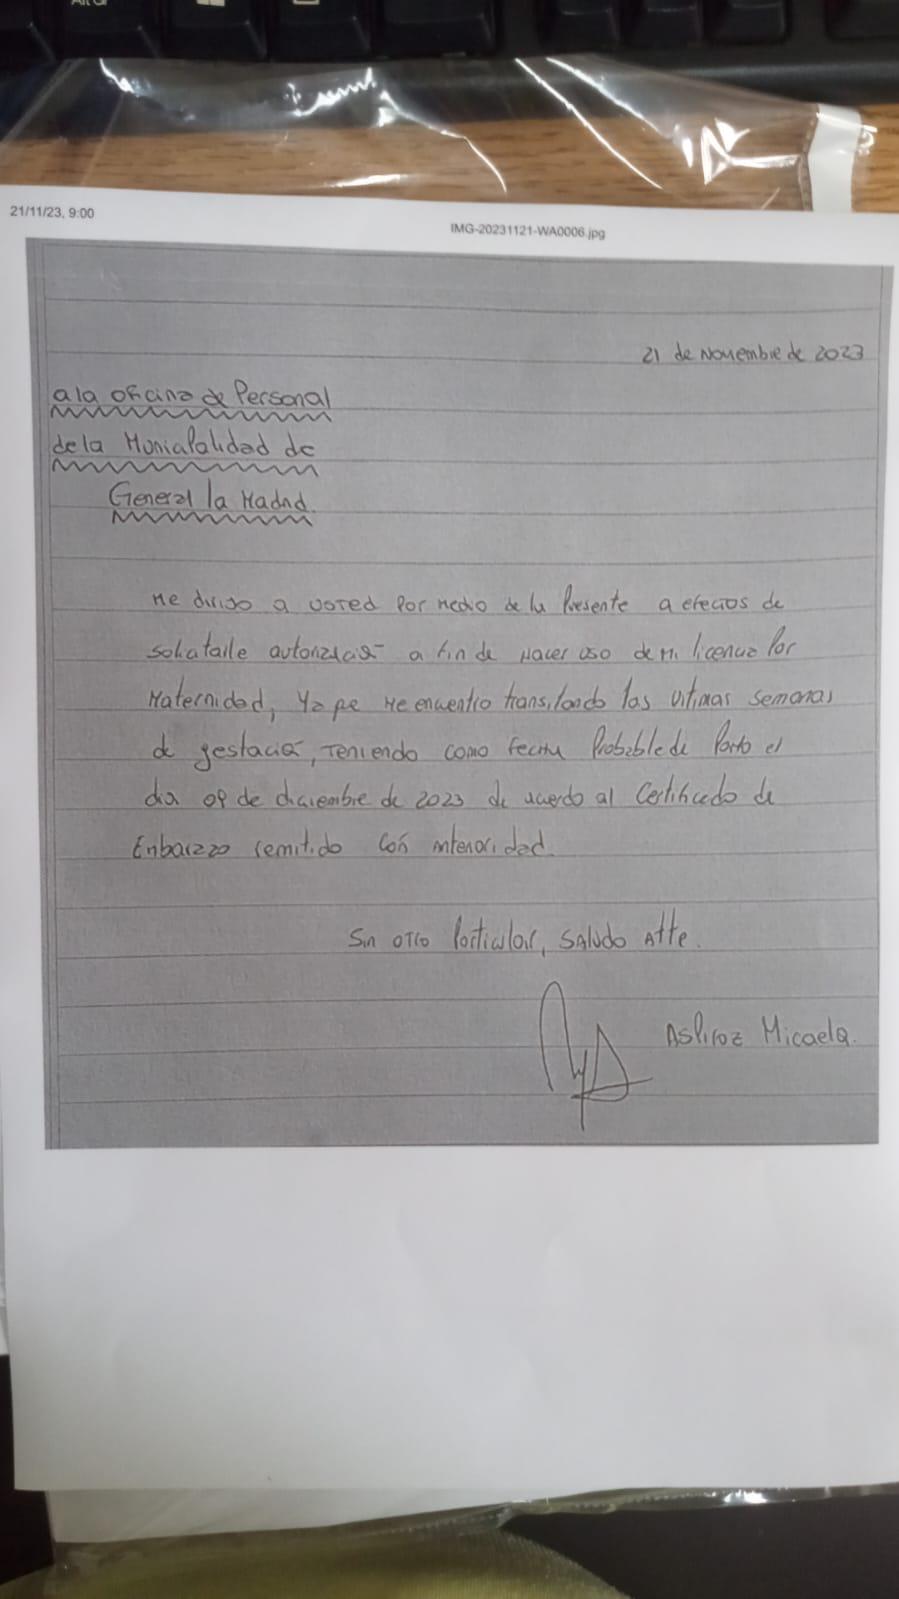 21/11/23, 9:00
IMG-20231121-WA0006.jpg
21 de Noviembre de 2023
a la oficina de Personal
de la Municipalidad de
General la Madrid.
Me dirijo a usted por medio de la Presente a efectos de
solicitarle autorización a fin de hacer uso de mi licencia por
Maternidad, ya que me encuentro transitando las ultimas semanas
de gestación, teniendo como fecha Probable de Parto el
dia 09 de diciembre de 2023 de acuerdo al Certificado de
Enbarazo remitido con anterioridad.
Sin otro Particular, SALUDO Atte.
Aspiroz Micaela.